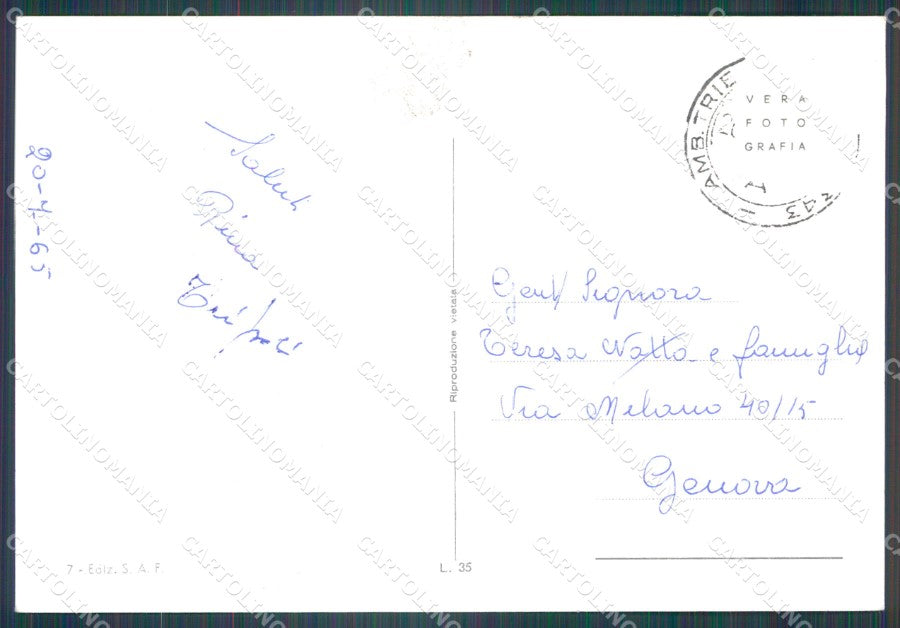 20-7-65
Saluti
Piera
7 - Ediz. S. A. F.
Riproduzione vietata
L. 35
VERA
FOTO
GRAFIA
AMB. TRIE
243
Gent/ Signora
Teresa Natta e famiglia
Via Milano 40/15
Genova
CARTOLINOMANIA